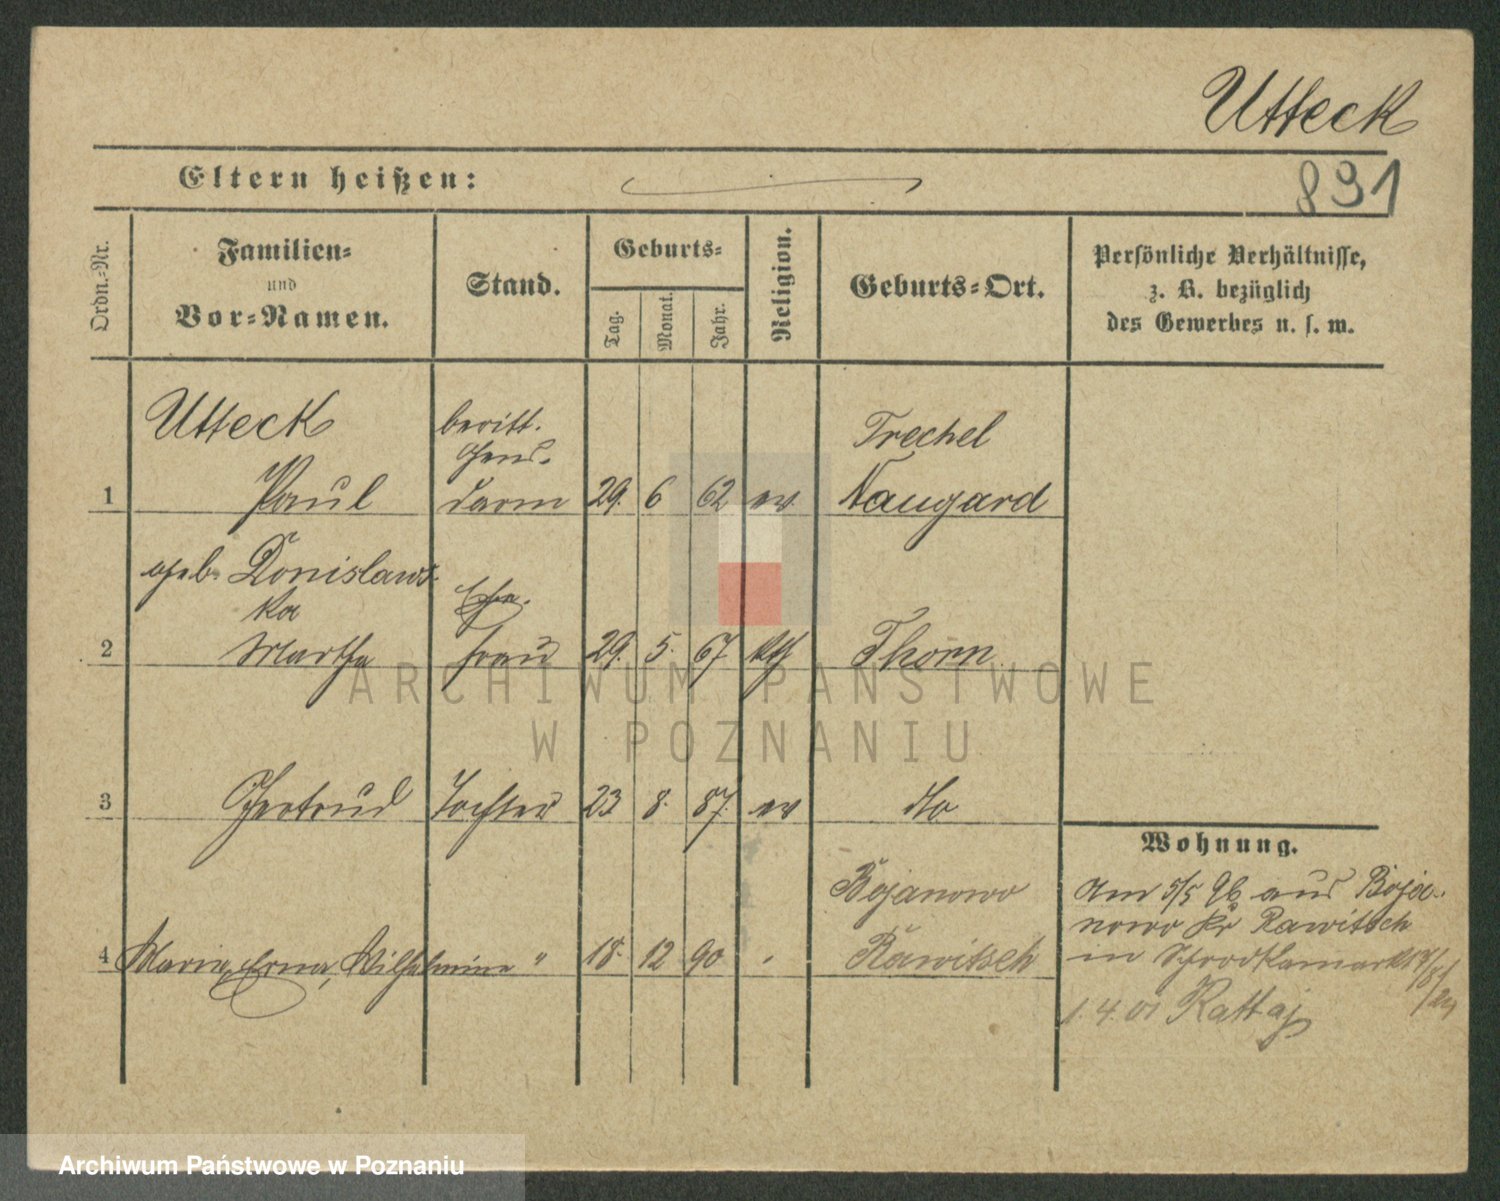 Utteck
Eltern heißen:
891
Ordn.-Nr.
Familien-
und
Vor-Namen.
Stand.
Geburts-
Tag.
Monat.
Jahr.
Religion.
Geburts-Ort.
Persönliche Verhältnisse,
z. B. bezüglich
des Gewerbes u. s. w.
Utteck
beritt.
Gens-
Trechel
1 Paul darm 29. 6 62 ev Naugard
geb. Donislaws-
ka
Ehe-
2 Martha frau 29. 5. 67 kth Thorn
3 Gertrud Tochter 23 8. 87. ev do
Bojanowo
4 Maria, Erna, Wilhelmine " 18. 12 90 " Rawitsch
Wohnung.
Am 5/5 96 aus Boja-
nowo Kr Rawitsch
in
1.4.01 Rattaj
ARCHIWUM PAŃSTWOWE
W POZNANIU
Archiwum Państwowe w Poznaniu